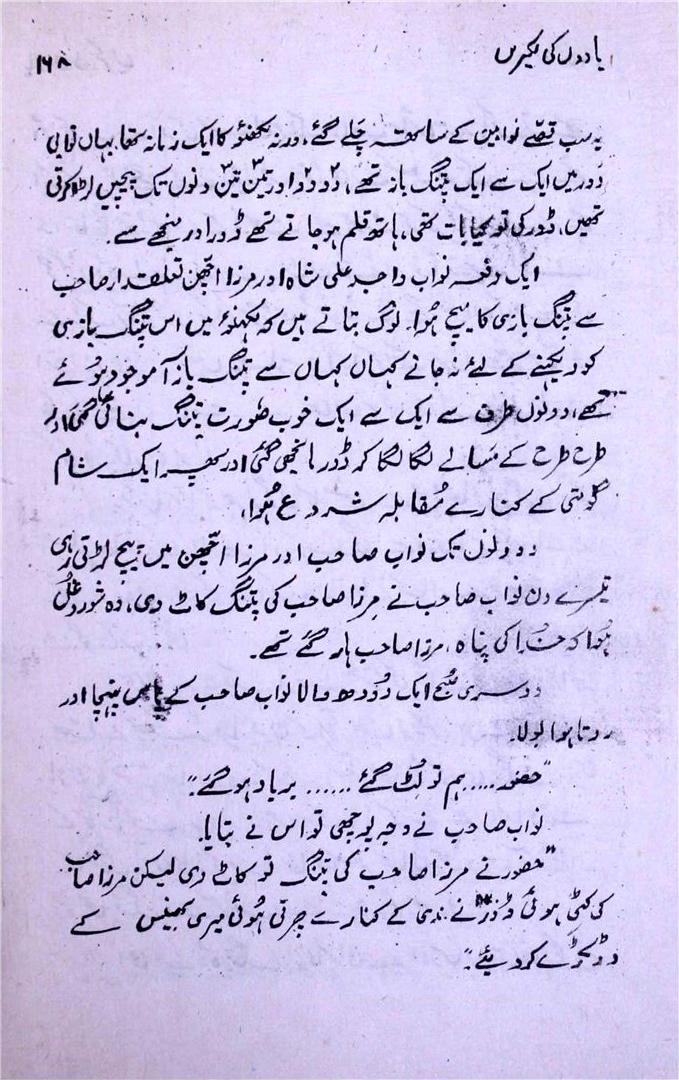 یادوں کی لکیریں
۱۶۸
یہ سب قصّے نوابین کے ساتھ چلے گئے، ورنہ لکھنؤ کا ایک زمانہ تھا یہاں نوابی
دَور میں ایک سے ایک پتنگ باز تھے، دو دو اور تین تین دنوں تک پیچیں لڑا کرتی
تھیں، ڈور کی تو کیا بات تھی، ہاتھ قلم ہو جاتے تھے ڈور اور منجھے سے۔
ایک دفعہ نواب واجد علی شاہ اور مرزا اچھن تعلقدار صاحب
سے پتنگ بازی کا پیچ ہُوا۔ لوگ بتاتے ہیں کہ لکھنؤ میں اس پتنگ بازی
کو دیکھنے کے لئے نہ جانے کہاں کہاں سے پتنگ باز آ موجود ہوئے
تھے، دونوں طرف سے ایک سے ایک خوب صورت پتنگ بنائی گئی اور
طرح طرح کے مَسالے لگا لگا کر ڈور مانجھی گئی اور پھر ایک شام
گومتی کے کنارے مُقابلہ شروع ہُوا،
دو دنوں تک نواب صاحب اور مرزا اچھن میں پیچ لڑتی رہی
تیسرے دن نواب صاحب نے مرزا صاحب کی پتنگ کاٹ دی، وہ شور و غُل
ہُوا کہ خُدا کی پناہ، مرزا صاحب ہار گئے تھے۔
دوسری صُبح ایک دُودھ والا نواب صاحب کے پاس پہنچا اور
روتا ہوا بولا۔
"حضور..... ہم تو لُٹ گئے ...... برباد ہو گئے۔"
نواب صاحب نے وجہ پوچھی تو اس نے بتایا۔
"حضور نے مرزا صاحب کی پتنگ تو کاٹ دی لیکن مرزا صاحب
کی کٹی ہوئی ڈور نے ندی کے کنارے چرتی ہُوئی میری بھینس کے
دو ٹکڑے کر دیئے۔"